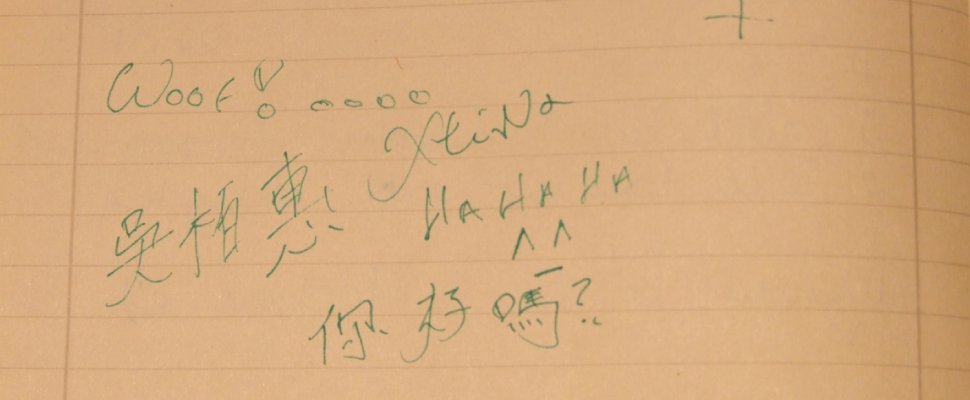 Woof! oooo
XtiNa
吳柏惠 HAHAHA
^_^
你好嗎?